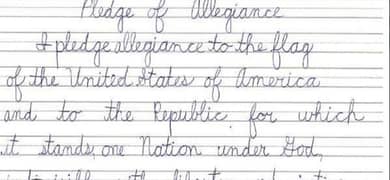 Pledge of Allegiance
I pledge allegiance to the flag
of the United States of America
and to the Republic for which
it stands, one Nation under God,